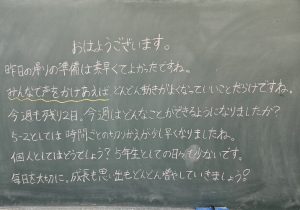 おはようございます。
昨日の帰りの準備は素早くてよかったですね。
みんなで声をかけあえばどんどん動きがよくなっていいことだらけですね。
今週も残り2日。今週はどんなことができるようになりましたか?
5-2としては時間ごとの切りかえが少し早くなりましたね。
個人としてはどうでしょう?5年生としての日々も少ないです。
毎日を大切に、成長も思い出もどんどん増やしていきましょう!